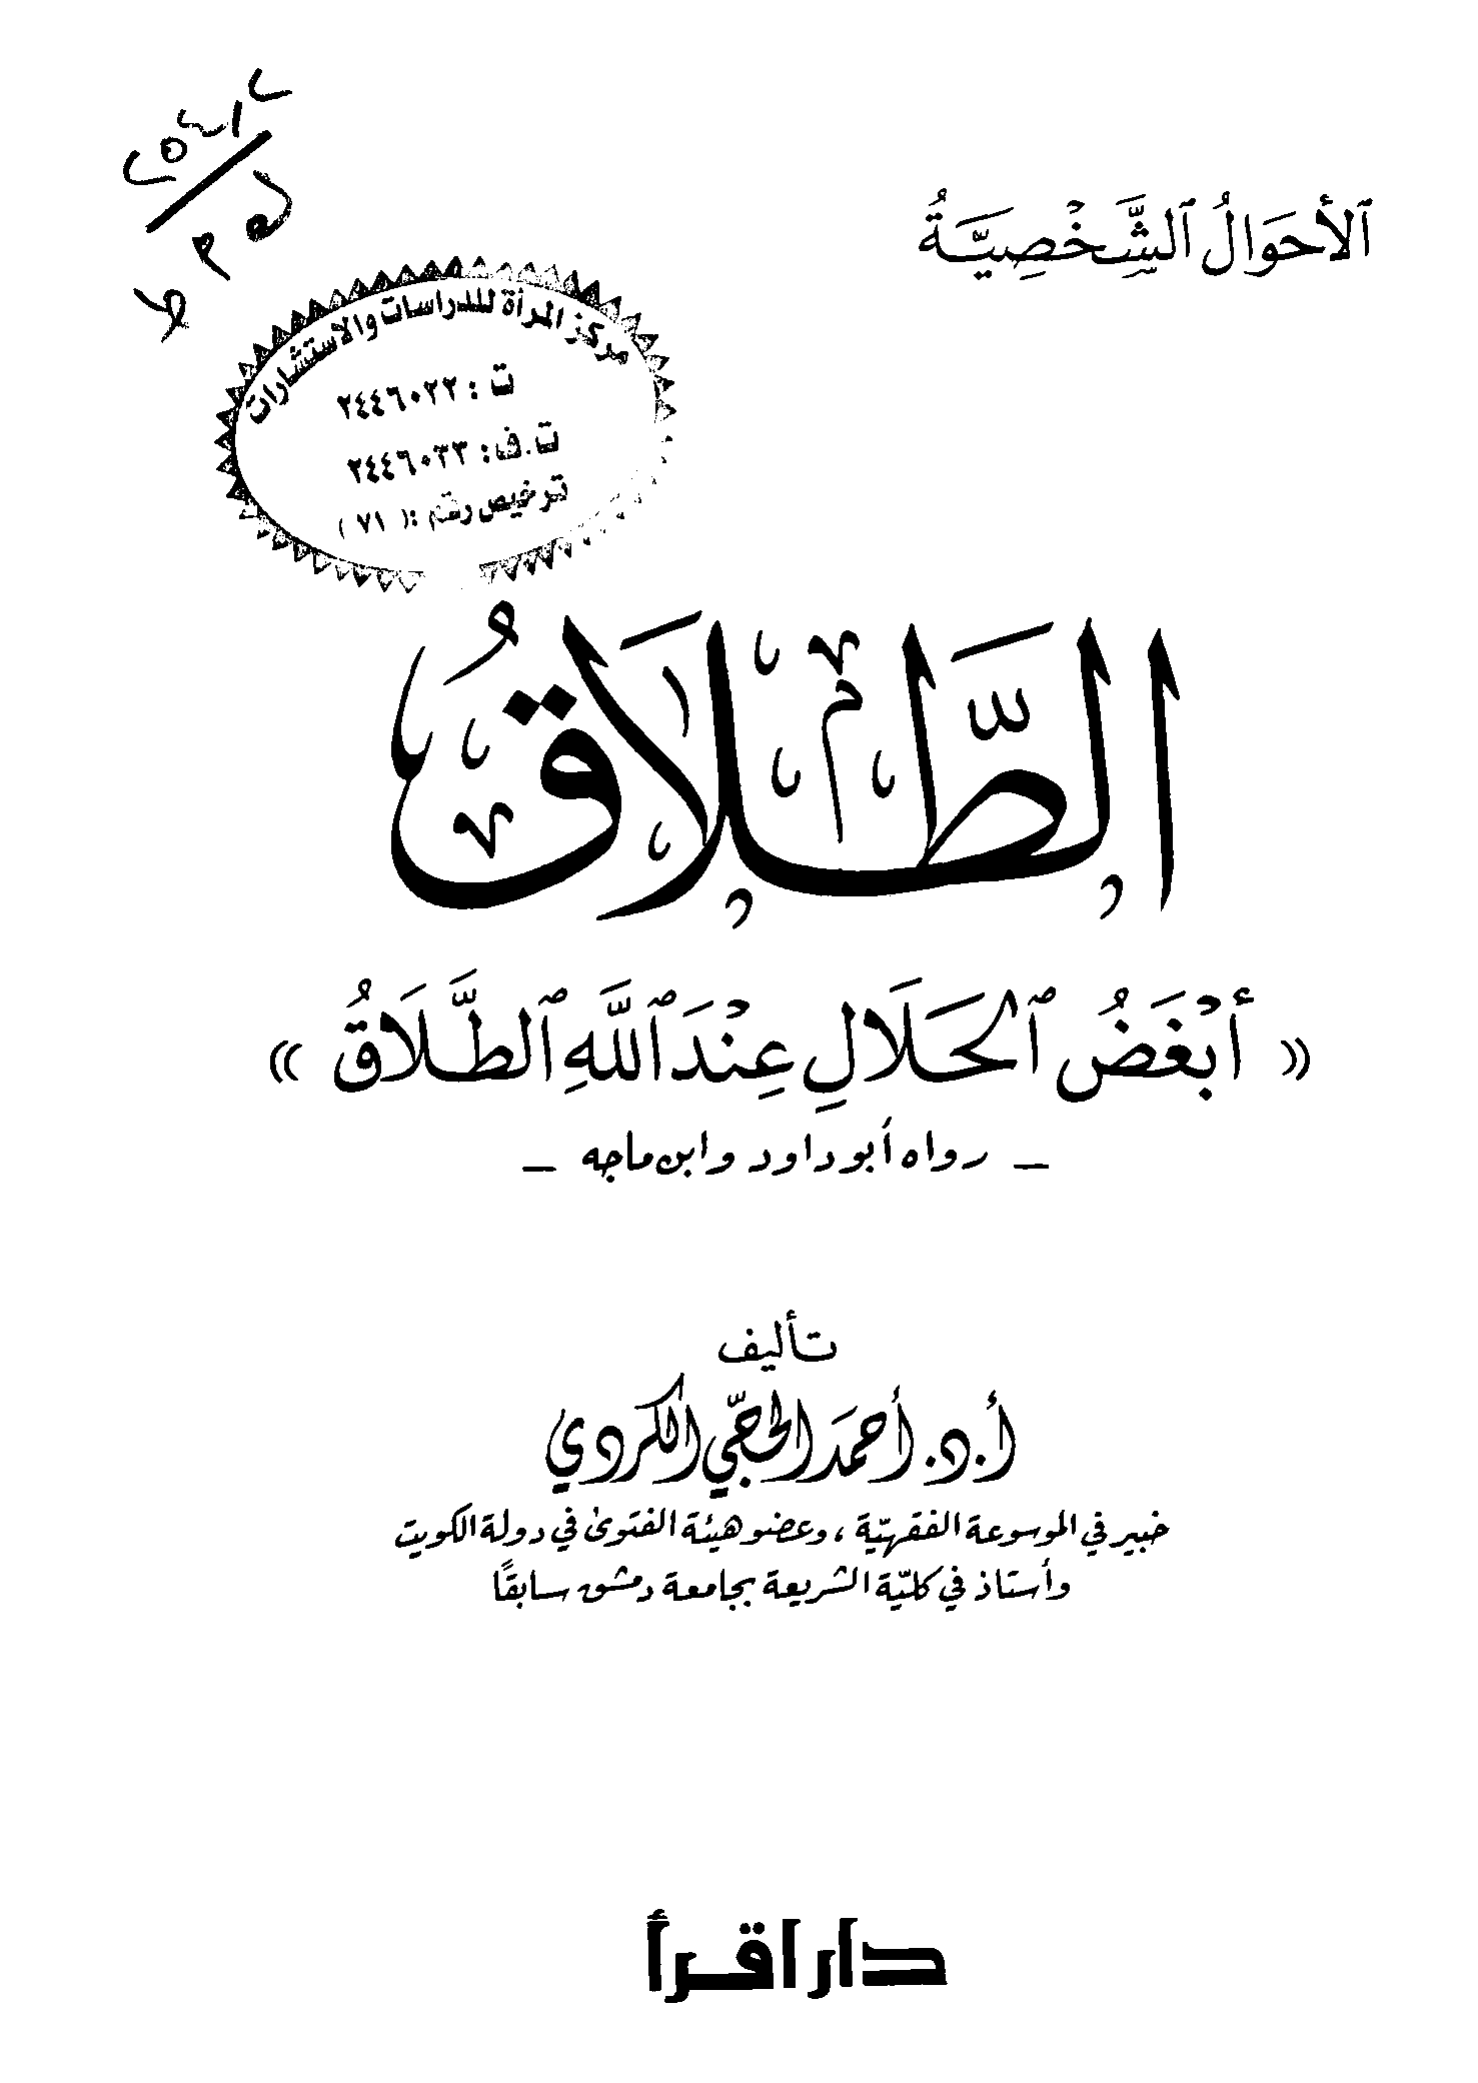 ٱلأَحْوَالُ ٱلشَّخْصِيَّةُ
مركز المرأة للدراسات والاستشارات
ت : ٢٤٤٦٠٢٢
ت.ف: ٢٤٤٦٠٣٣
ترخيص رقم :( ٧١ )
الطَّلَاقُ
« أَبْغَضُ ٱلْحَلَالِ عِنْدَ ٱللَّهِ ٱلطَّلَاقُ »
_ رواه أبو داود وابن ماجه _
تأليف
أ.د. أحمَد الحجّي الكردي
خبير في الموسوعة الفقهيّة ، وعضو هيئة الفتوىٰ في دولة الكويت
وأستاذ في كليّة الشريعة بجامعة دمشق سابقًا
دار اقرأ